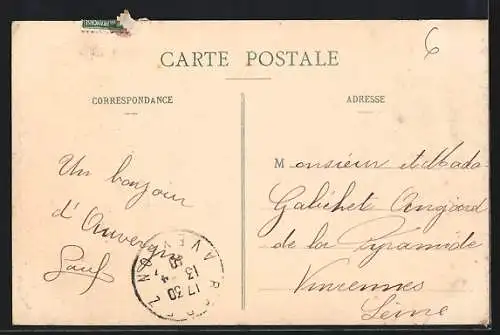 6
CARTE POSTALE
CORRESPONDANCE
ADRESSE
Un bonjour
d'Auvergne
Monsieur et Mada
Galichet
de la Pyramide
Vincennes
Seine
17 30
13